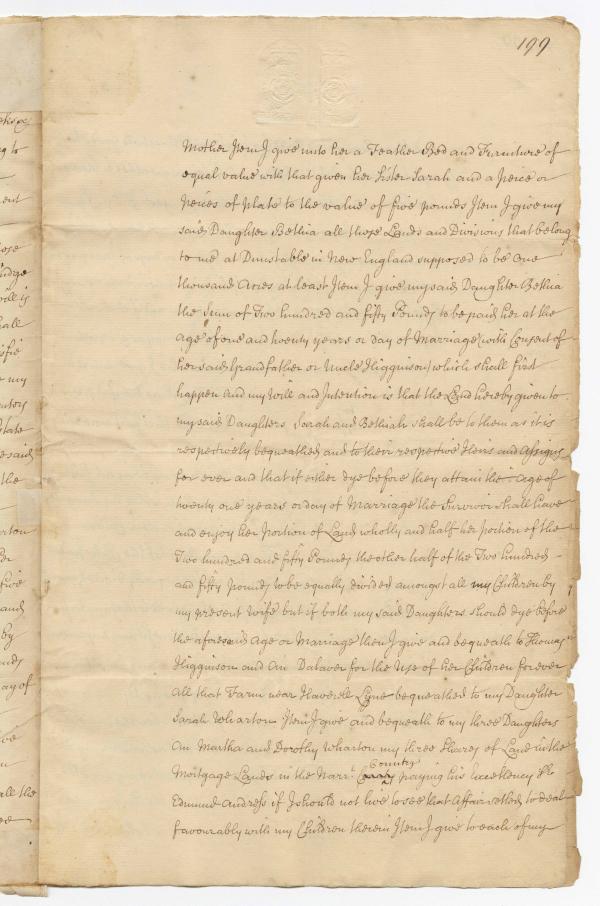 199
Mother Item I give unto her a Feather Bed and Furniture of
equal value with that given her Sister Sarah and a peice or
peices of Plate to the value of five pounds Item I give my
said Daughter Bethia all those Lands and Divisions that belong
to me at Dunstable in New England supposed to be One
thousand Acres at least Item I give my said Daughter Bethia
the Sum of Two hundred and fifty Pounds to be paid her at the
age of one and twenty years or day of Marriage (with Consent of
her said Grandfather or Uncle Higginson) which shall first
happen And my Will and Intention is that the Land hereby given to
my said Daughters Sarah and Bethiah shall be to them as it is
respectively bequeathed and to their respective Heirs and Assigns
for ever and that if either dye before they attain the Age of
twenty one years or day of Marriage the Survivor shall have
and enjoy her Portion of Land wholly and half her portion of the
Two hundred and fifty Pounds the other half of the Two hundred
and fifty pounds to be equally divided amongst all my Children by
my present Wife but if both my said Daughters should dye before
the aforesaid Age or Marriage then I give and bequeath to Thomas
Higginson and An Dalaver for the Use of her Children forever
all that Farm near Haverell Lyne bequeathed to my Daughter
Sarah Wharton Item I give and bequeath to my three Daughters
An Martha and Dorothy Wharton my three Shares of Land in the
Mortgage Lands in the Narr: Country paying his Excellency Sr
Edmund Andross if I should not live to see that Affair setled to deal
favourably with my Children therein Item I give to each of my